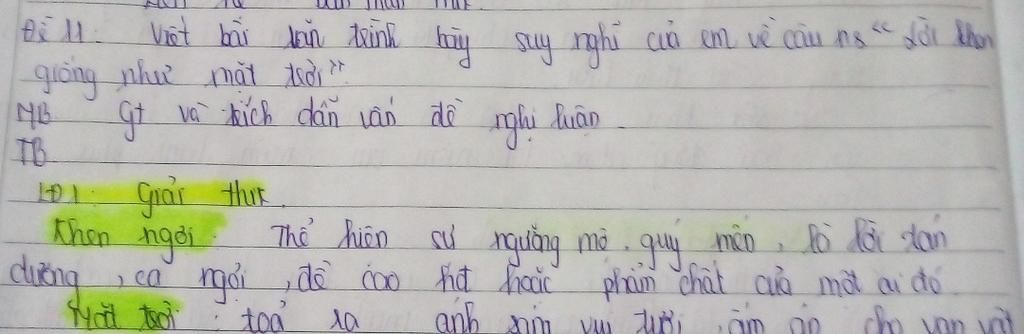 Đề 11: Viết bài văn trình bày suy nghĩ của em về câu ns "lời khen
giống như mặt trời"
MB Gt và trích dẫn vấn đề nghị luận
TB
LĐ1: Giải thík
Khen ngợi: Thể hiện sự ngưỡng mộ, quý mến, là lời tán
dương, ca ngợi, đề cao hđ hoặc phẩm chất của một ai đó
Mặt trời: toả ra ánh sáng vui tươi, ấm áp cho vạn vật